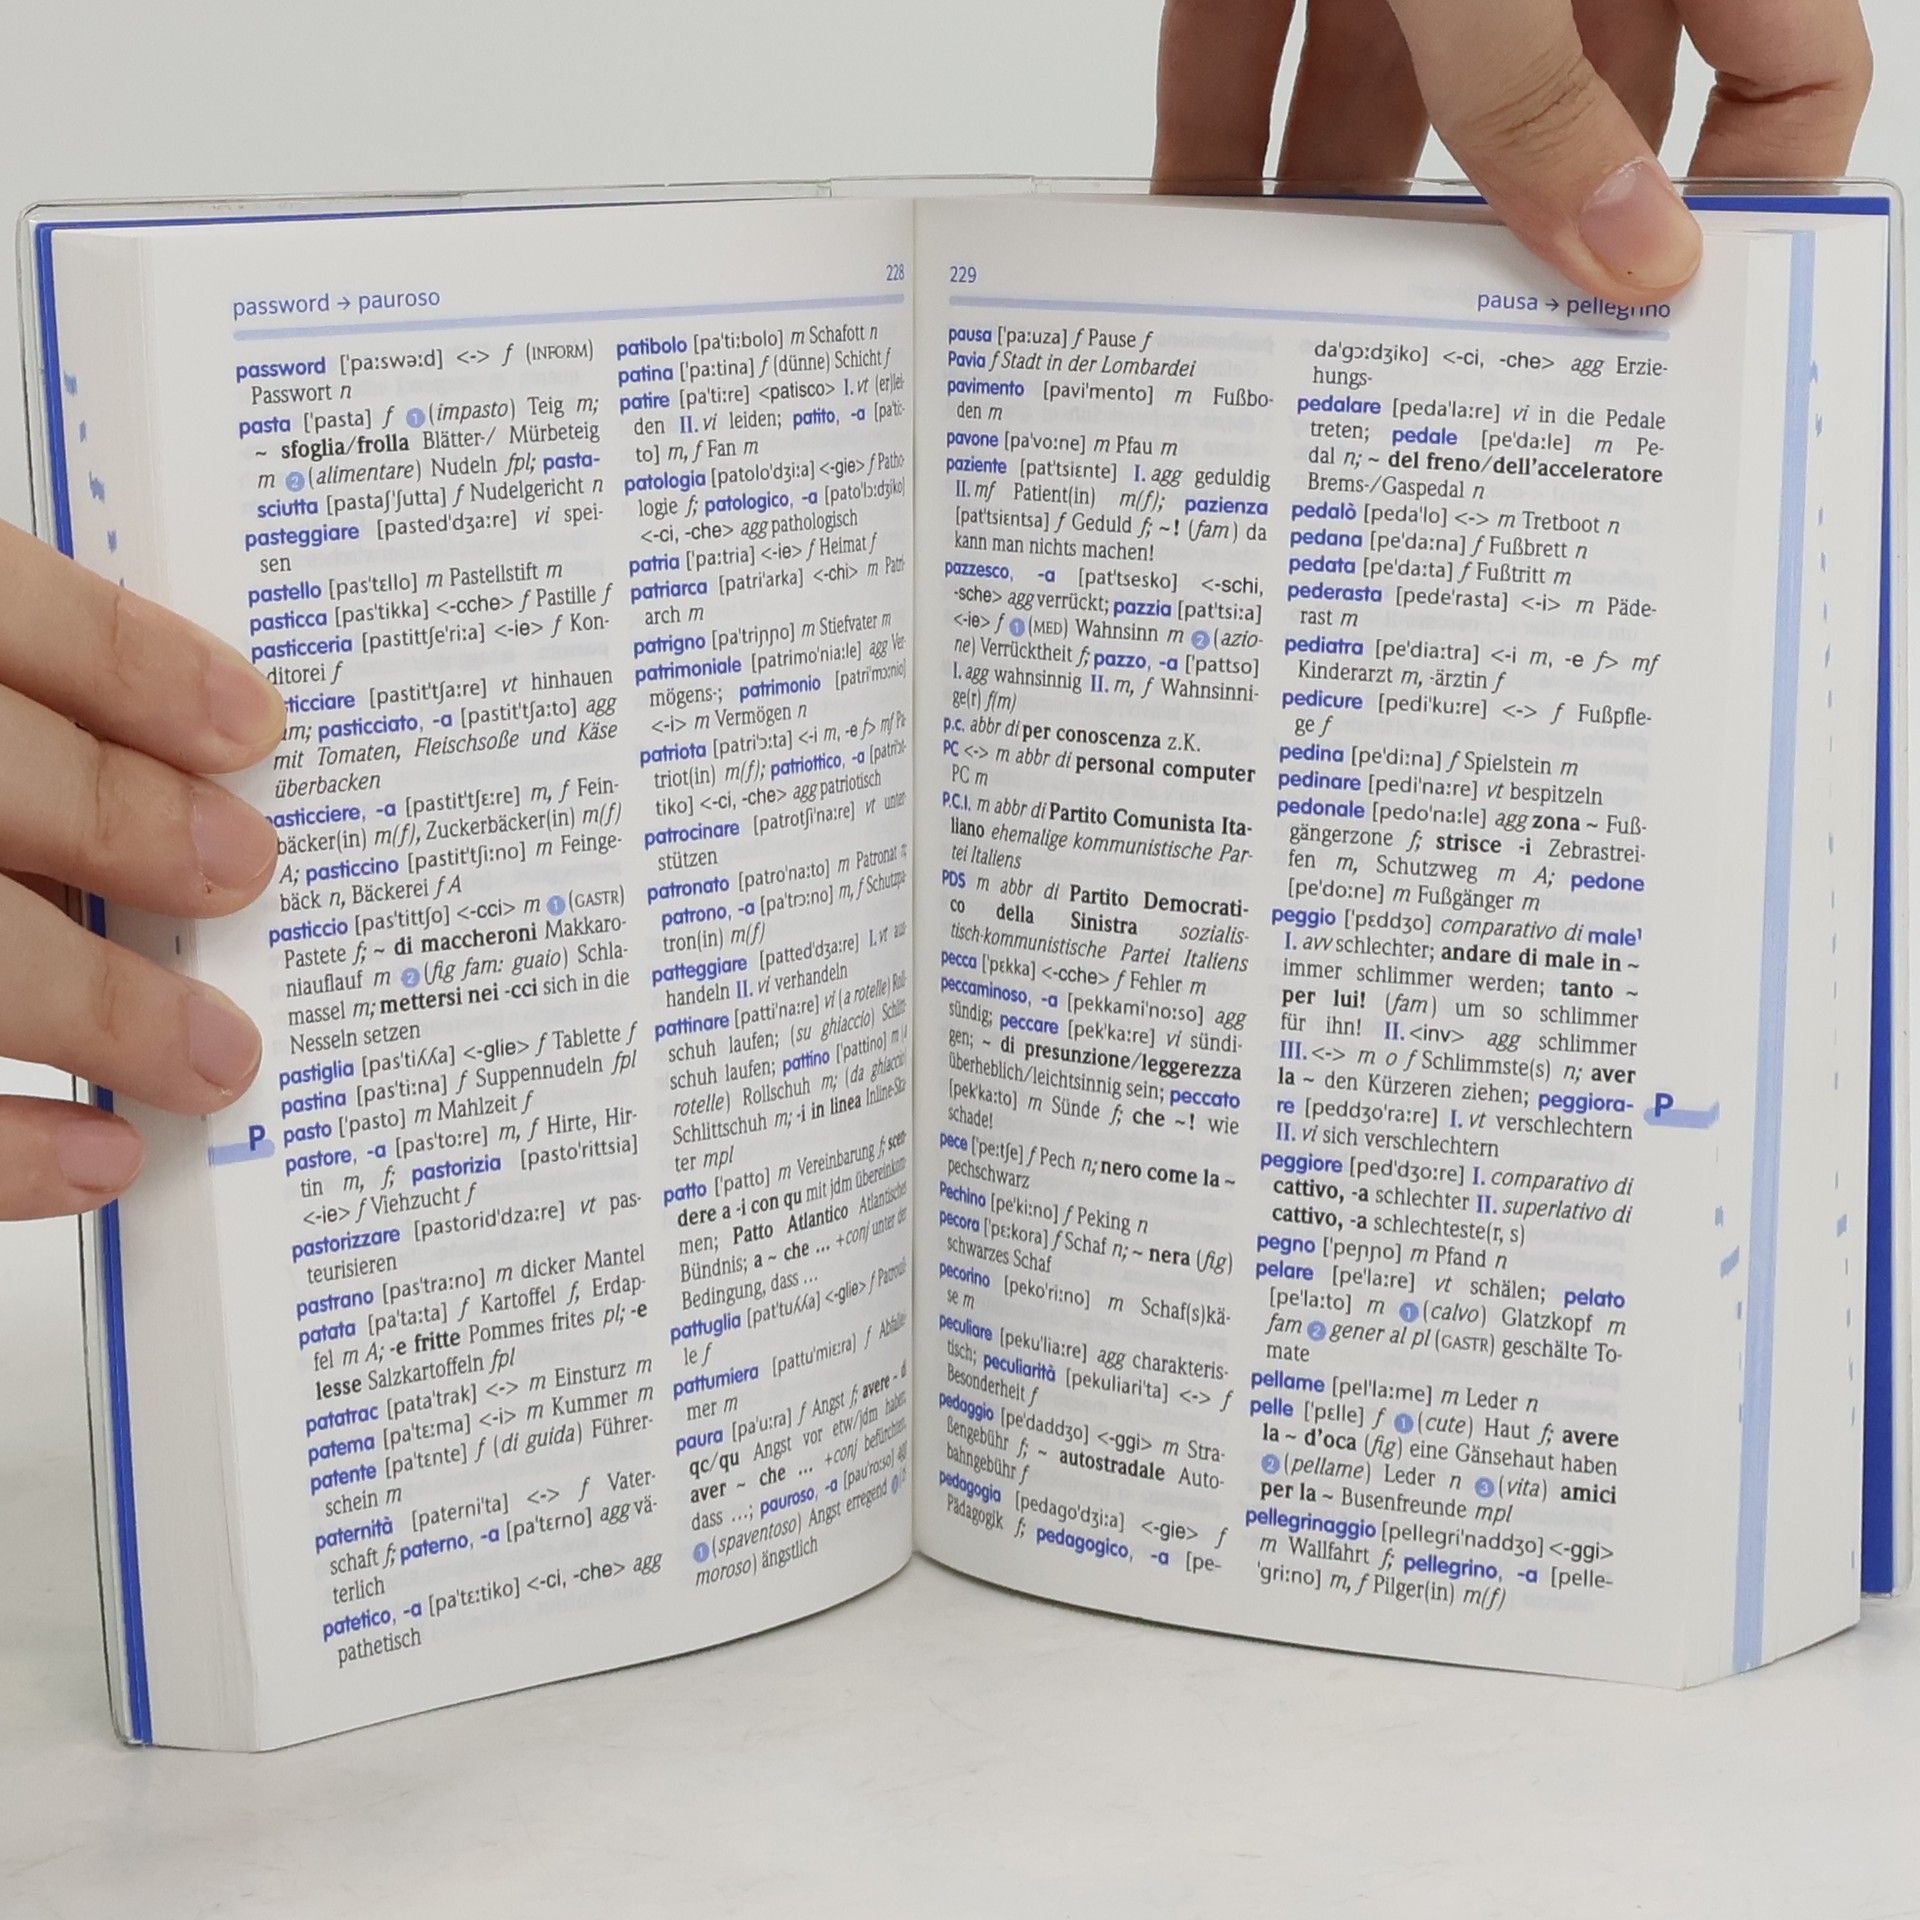 228
password → pauroso
password ['paːswəːd] <-> f (INFORM)
Passwort n
pasta ['pasta] f 1 (impasto) Teig m;
~ sfoglia/frolla Blätter-/ Mürbeteig
m 2 (alimentare) Nudeln fpl; pasta-
sciutta [pastaʃ'ʃutta] f Nudelgericht n
pasteggiare [pasted'dʒaːre] vi spei-
sen
pastello [pas'tɛllo] m Pastellstift m
pasticca [pas'tikka] <-cche> f Pastille f
pasticceria [pastittʃe'riːa] <-ie> f Kon-
ditorei f
[pastit'tʃaːre] vt hinhauen
pasticciato, -a [pastit'tʃaːto] agg
mit Tomaten, Fleischsoße und Käse
überbacken
-a [pastit'tʃɛːre] m, f Fein-
bäcker(in) m(f), Zuckerbäcker(in) m(f)
A; pasticcino [pastit'tʃiːno] m Feinge-
bäck n, Bäckerei f A
pasticcio [pas'tittʃo] <-cci> m 1 (GASTR)
Pastete f; ~ di maccheroni Makkaro-
niauflauf m 2 (fig fam: guaio) Schla-
massel m; mettersi nei -cci sich in die
Nesseln setzen
pastiglia [pas'tiʎʎa] <-glie> f Tablette f
pastina [pas'tiːna] f Suppennudeln fpl
pasto ['pasto] m Mahlzeit f
P
pastore, -a [pas'toːre] m, f Hirte, Hir-
tin m, f; pastorizia [pasto'rittsia]
<-ie> f Viehzucht f
pastorizzare [pastorid'dzaːre] vt pas-
teurisieren
pastrano [pas'traːno] m dicker Mantel
patata [pa'taːta] f Kartoffel f, Erdap-
fel m A; -e fritte Pommes frites pl; -e
lesse Salzkartoffeln fpl
patatrac [pata'trak] <-> m Einsturz m
patema [pa'tɛːma] <-i> m Kummer m
patente [pa'tɛnte] f (di guida) Führer-
schein m
paternità [paterni'ta] <-> f Vater-
schaft f; paterno, -a [pa'tɛrno] agg vä-
terlich
patetico, -a [pa'tɛːtiko] <-ci, -che> agg
pathetisch
patibolo [pa'tiːbolo] m Schafott n
patina ['paːtina] f (dünne) Schicht f
patire [pa'tiːre] <patisco> I. vt (er)lei-
den II. vi leiden; patito, -a [pa'tiː-
to] m, f Fan m
patologia [patolo'dʒiːa] <-gie> f Patho-
logie f; patologico, -a [pato'lɔːdʒiko]
<-ci, -che> agg pathologisch
patria ['paːtria] <-ie> f Heimat f
patriarca [patri'arka] <-chi> m Patri-
arch m
patrigno [pa'triɲɲo] m Stiefvater m
patrimoniale [patrimo'niaːle] agg Ver-
mögens-; patrimonio [patri'mɔːnio]
<-i> m Vermögen n
patriota [patri'ɔːta] <-i m, -e f> mf Pa-
triot(in) m(f); patriottico, -a [patri'ɔt-
tiko] <-ci, -che> agg patriotisch
patrocinare [patrotʃi'naːre] vt unter-
stützen
patronato [patro'naːto] m Patronat n;
patrono, -a [pa'trɔːno] m, f Schutzpa-
tron(in) m(f)
patteggiare [patted'dʒaːre] I. vt aus-
handeln II. vi verhandeln
pattinare [patti'naːre] vi (a rotelle) Roll-
schuh laufen; (su ghiaccio) Schlitt-
schuh laufen; pattino ['pattino] m (a
rotelle) Rollschuh m; (da ghiaccio)
Schlittschuh m; -i in linea Inline-Ska-
ter mpl
patto ['patto] m Vereinbarung f; scen-
dere a -i con qu mit jdm übereinkom-
men; Patto Atlantico Atlantisches
Bündnis; a ~ che ... +conj unter der
Bedingung, dass ...
pattuglia [pat'tuʎʎa] <-glie> f Patrouil-
le f
pattumiera [pattu'miɛːra] f Abfallei-
mer m
paura [pa'uːra] f Angst f; avere ~ di
qc/qu Angst vor etw/jdm haben;
aver ~ che ... +conj befürchten,
dass ...; pauroso, -a [pau'roːso] agg
1 (spaventoso) Angst erregend 2
moroso) ängstlich
229
pausa → pellegrino
pausa ['paːuza] f Pause f
Pavia f Stadt in der Lombardei
pavimento [pavi'mento] m Fußbo-
den m
pavone [pa'voːne] m Pfau m
paziente [pat'tsiɛnte] I. agg geduldig
II. mf Patient(in) m(f); pazienza
[pat'tsiɛntsa] f Geduld f; ~! (fam) da
kann man nichts machen!
pazzesco, -a [pat'tsesko] <-schi,
-sche> agg verrückt; pazzia [pat'tsiːa]
<-ie> f 1 (MED) Wahnsinn m 2 (azio-
ne) Verrücktheit f; pazzo, -a ['pattso]
I. agg wahnsinnig II. m, f Wahnsinni-
ge(r) f(m)
p.c. abbr di per conoscenza z.K.
PC <-> m abbr di personal computer
PC m
P.C.I. m abbr di Partito Comunista Ita-
liano ehemalige kommunistische Par-
tei Italiens
PDS m abbr di Partito Democrati-
co della Sinistra sozialis-
tisch-kommunistische Partei Italiens
pecca ['pɛkka] <-cche> f Fehler m
peccaminoso, -a [pekkami'noːso] agg
sündig; peccare [pek'kaːre] vi sündi-
gen; ~ di presunzione/leggerezza
überheblich/leichtsinnig sein; peccato
[pek'kaːto] m Sünde f; che ~! wie
schade!
pece ['peːtʃe] f Pech n; nero come la ~
pechschwarz
Pechino [pe'kiːno] f Peking n
pecora ['pɛːkora] f Schaf n; ~ nera (fig)
schwarzes Schaf
pecorino [peko'riːno] m Schaf(s)kä-
se m
peculiare [peku'liaːre] agg charakteris-
tisch; peculiarità [pekuliari'ta] <-> f
Besonderheit f
pedaggio [pe'daddʒo] <-ggi> m Stra-
ßengebühr f; ~ autostradale Auto-
bahngebühr f
pedagogia [pedago'dʒiːa] <-gie> f
Pädagogik f; pedagogico, -a [pe-
da'gɔːdʒiko] <-ci, -che> agg Erzie-
hungs-
pedalare [peda'laːre] vi in die Pedale
treten; pedale [pe'daːle] m Pe-
dal n; ~ del freno/dell'acceleratore
Brems-/Gaspedal n
pedalò [peda'lo] <-> m Tretboot n
pedana [pe'daːna] f Fußbrett n
pedata [pe'daːta] f Fußtritt m
pederasta [pede'rasta] <-i> m Päde-
rast m
pediatra [pe'diaːtra] <-i m, -e f> mf
Kinderarzt m, -ärztin f
pedicure [pedi'kuːre] <-> f Fußpfle-
ge f
pedina [pe'diːna] f Spielstein m
pedinare [pedi'naːre] vt bespitzeln
pedonale [pedo'naːle] agg zona ~ Fuß-
gängerzone f; strisce -i Zebrastrei-
fen m, Schutzweg m A; pedone
[pe'doːne] m Fußgänger m
peggio ['pɛddʒo] comparativo di male¹
I. avv schlechter; andare di male in ~
immer schlimmer werden; tanto ~
per lui! (fam) um so schlimmer
für ihn! II. <inv> agg schlimmer
III. <-> m o f Schlimmste(s) n; aver
la ~ den Kürzeren ziehen; peggiora-
P
re [peddʒo'raːre] I. vt verschlechtern
II. vi sich verschlechtern
peggiore [ped'dʒoːre] I. comparativo di
cattivo, -a schlechter II. superlativo di
cattivo, -a schlechteste(r, s)
pegno ['peɲɲo] m Pfand n
pelare [pe'laːre] vt schälen; pelato
[pe'laːto] m 1 (calvo) Glatzkopf m
fam 2 gener al pl (GASTR) geschälte To-
mate
pellame [pel'laːme] m Leder n
pelle ['pɛlle] f 1 (cute) Haut f; avere
la ~ d'oca (fig) eine Gänsehaut haben
2 (pellame) Leder n 3 (vita) amici
per la ~ Busenfreunde mpl
pellegrinaggio [pellegri'naddʒo] <-ggi>
m Wallfahrt f; pellegrino, -a [pelle-
'griːno] m, f Pilger(in) m(f)